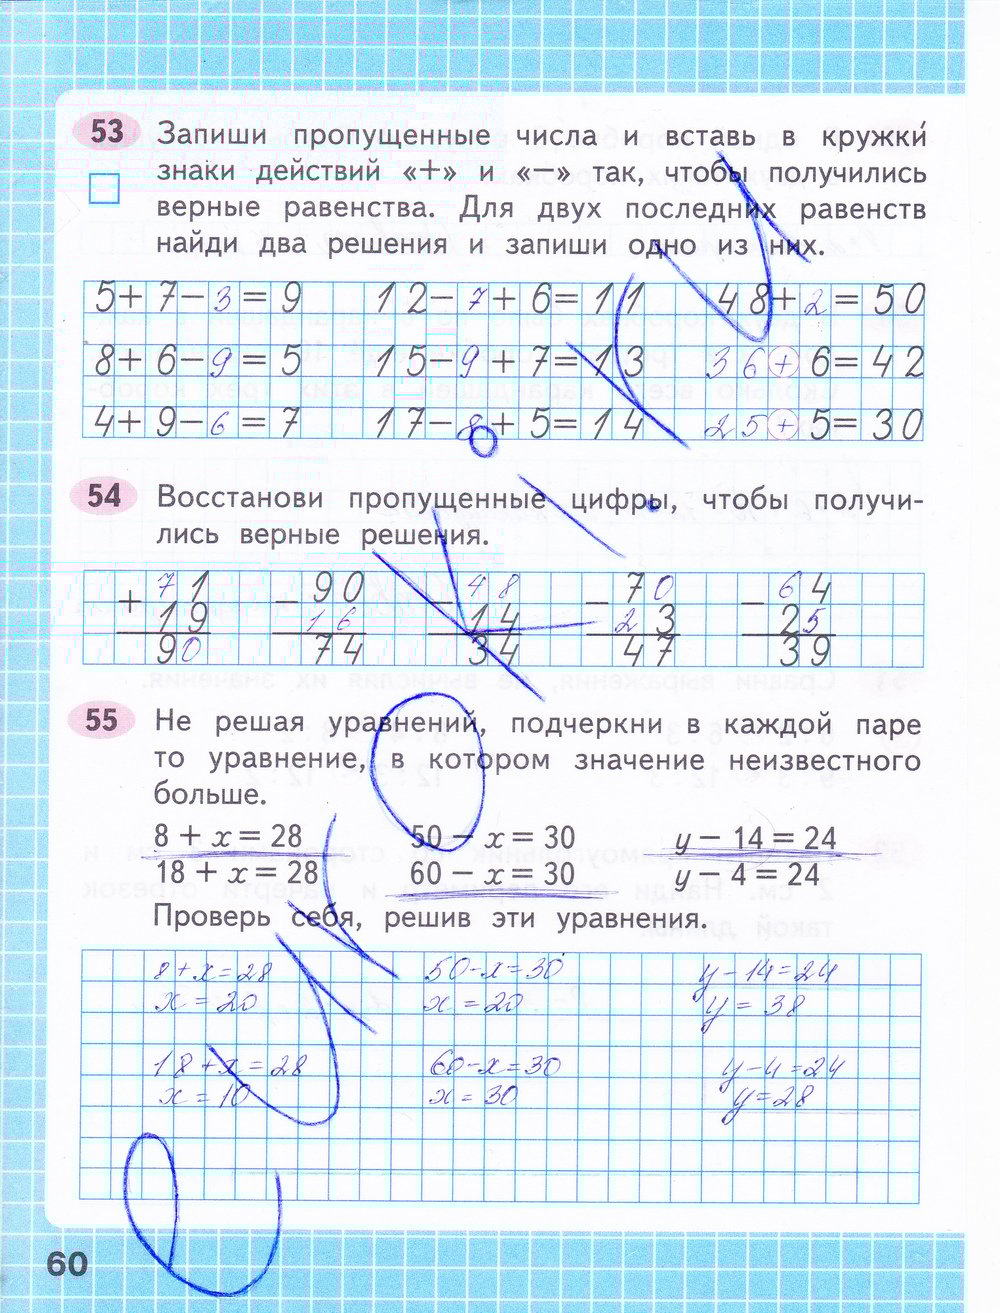 53 Запиши пропущенные числа и вставь в кружки́
знаки действий «+» и «-» так, чтобы получились
верные равенства. Для двух последних равенств
найди два решения и запиши одно из них.
5+7-3=9 12-7+6=11 48+2=50
8+6-9=5 15-9+7=13 36+6=42
4+9-6=7 17-8+5=14 25+5=30
54 Восстанови пропущенные цифры, чтобы получи-
лись верные решения.
+ 71 - 90 - 48 - 70 - 64
19 16 14 23 25
90 74 34 47 39
55 Не решая уравнений, подчеркни в каждой паре
то уравнение, в котором значение неизвестного
больше.
8 + x = 28 50 - x = 30 y - 14 = 24
18 + x = 28 60 - x = 30 y - 4 = 24
Проверь себя, решив эти уравнения.
8+x=28 50-x=30 y-14=24
x=20 x=20 y=38
18+x=28 60-x=30 y-4=24
x=10 x=30 y=28
60